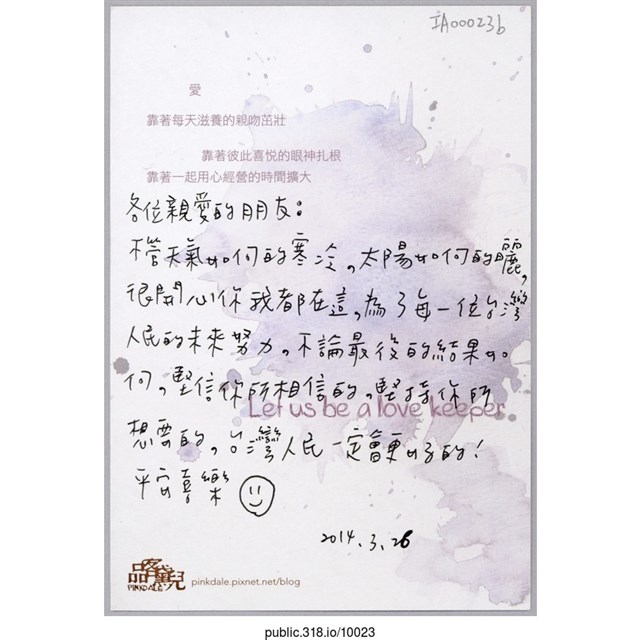 IA00023b
愛
靠著每天滋養的親吻茁壯
靠著彼此喜悅的眼神扎根
靠著一起用心經營的時間擴大
各位親愛的朋友：
不管天氣如何的寒冷，太陽如何的曬，
很開心你我都在這，為了每一位台灣
人民的未來努力，不論最後的結果如
何，堅信你所相信的，堅持你所
Let us be a love keeper
想要的，台灣人民一定會更好的！
平安喜樂
2014.3.26
PINKDALE
pinkdale.pixnet.net/blog
public.318.io/10023